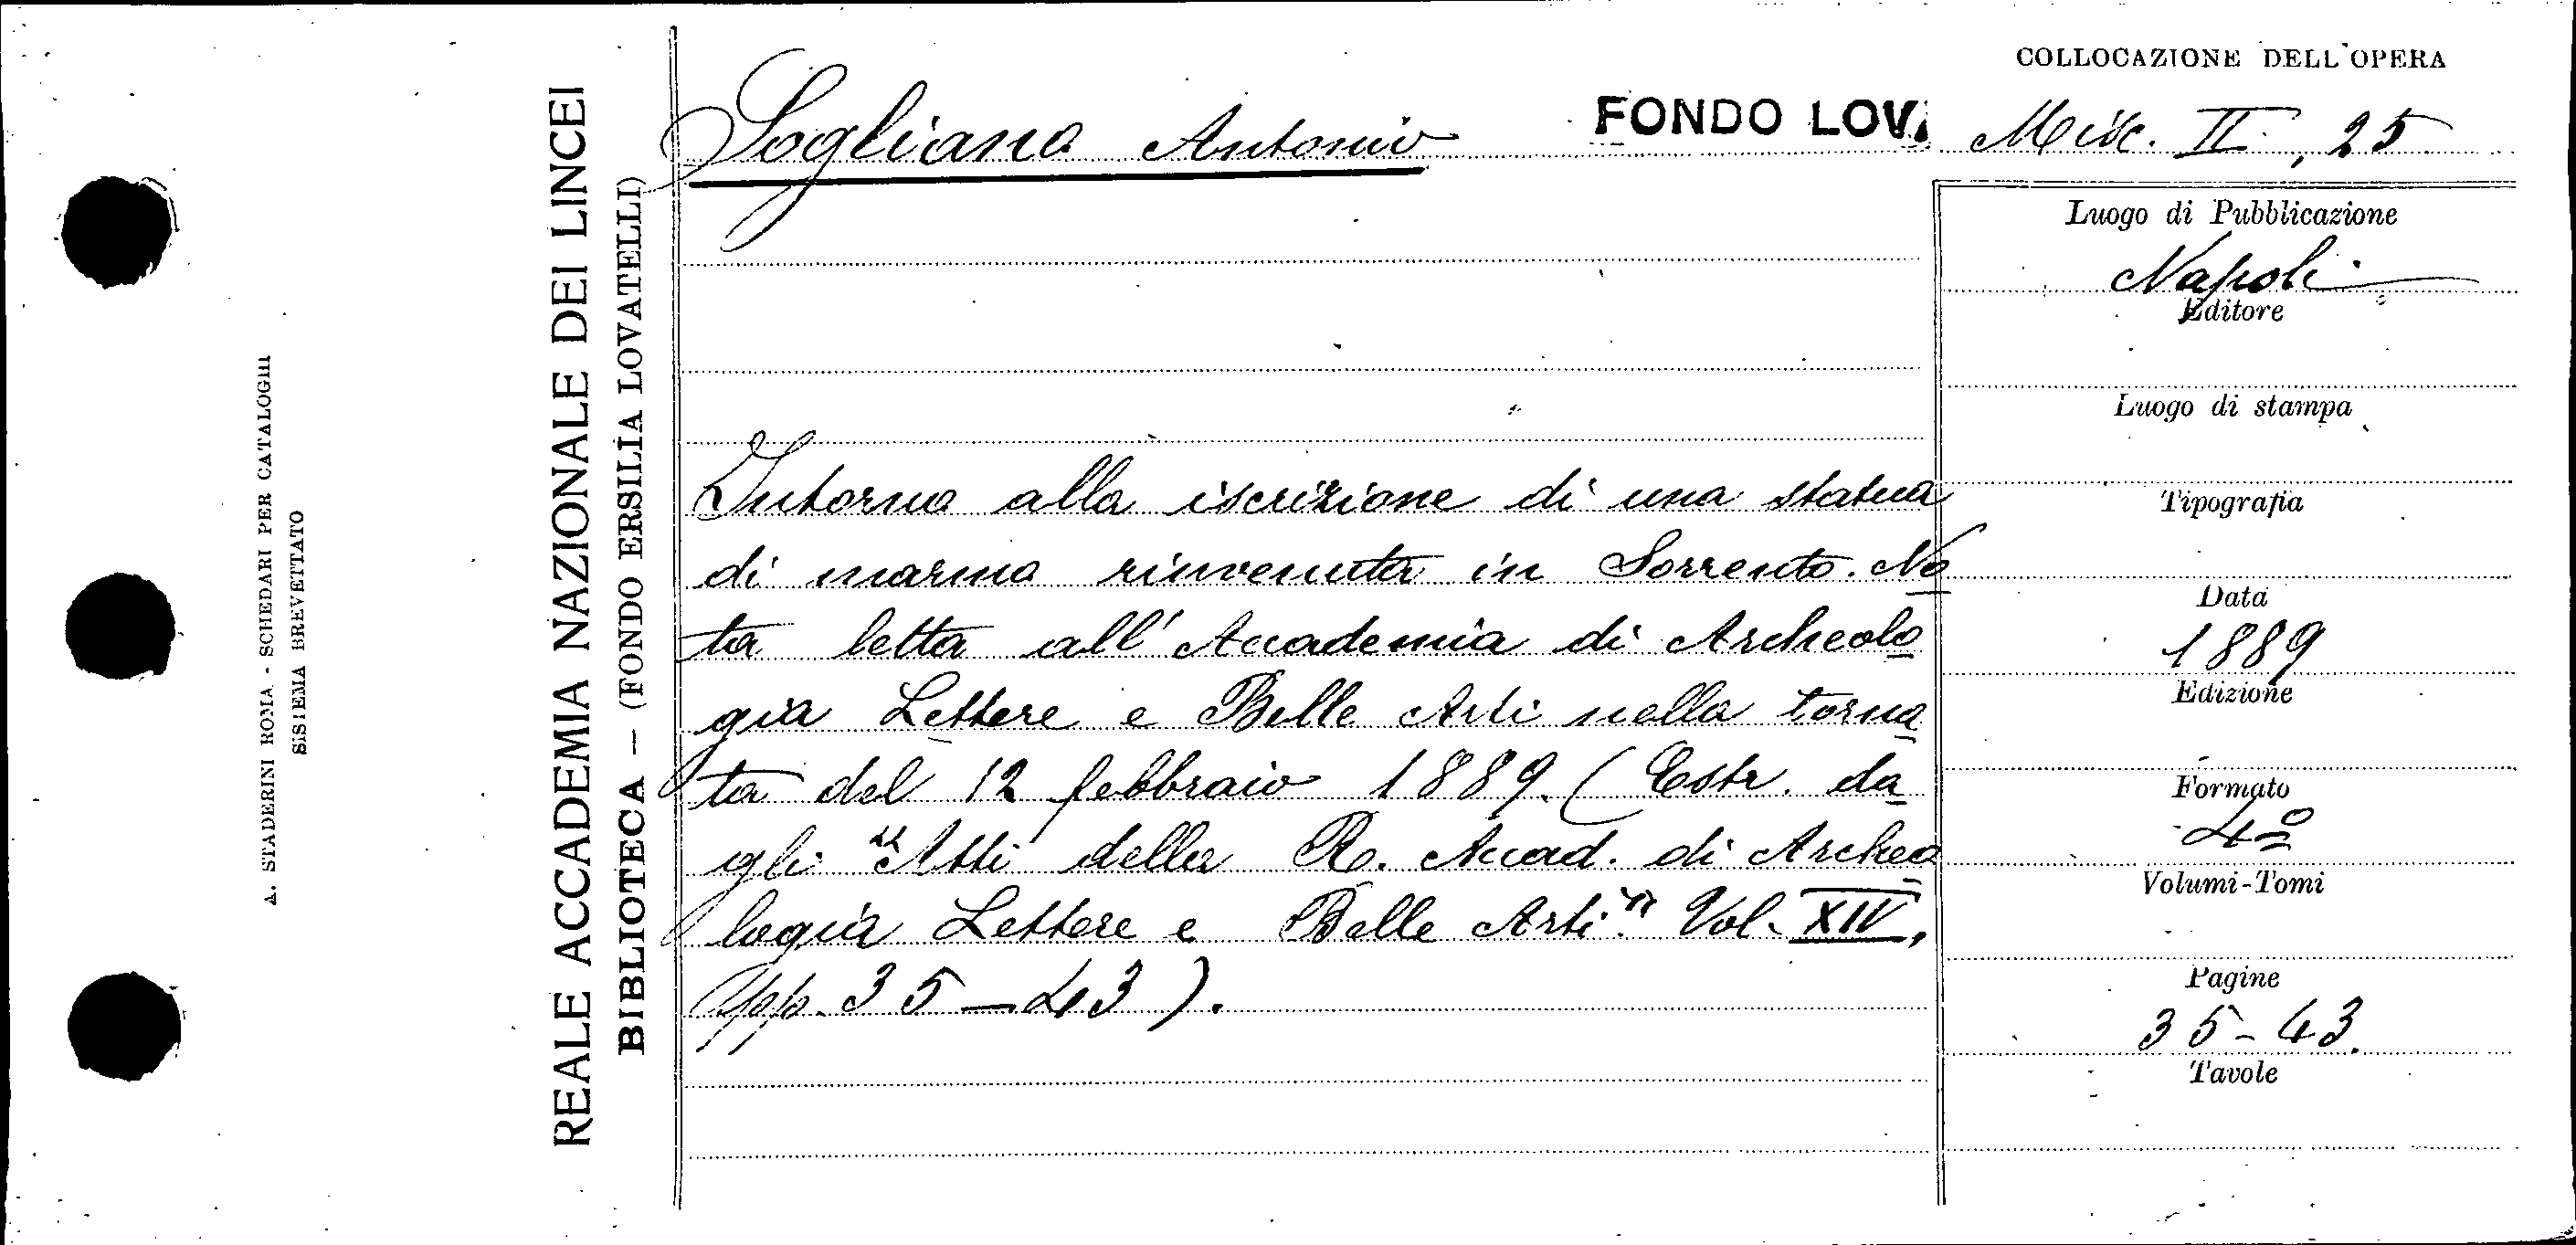 A. STADERINI ROMA - SCHEDARI PER CATALOGHI
SISTEMA BREVETTATO
REALE ACCADEMIA NAZIONALE DEI LINCEI
BIBLIOTECA — (FONDO ERSILIA LOVATELLI)
COLLOCAZIONE DELL'OPERA
Sogliano Antonio
FONDO LOV.
Misc. II, 25
Intorno alla iscrizione di una statua
di marmo rinvenuta in Sorrento. No
ta letta all'Accademia di Archeolo
gia Lettere e Belle Arti nella torna
ta del 12 febbraio 1889. (Estr. da
gli "Atti della R. Accad. di Archeo
logia Lettere e Belle Arti" Vol. XIV,
pp. 35-43).
Luogo di Pubblicazione
Napoli
Editore
Luogo di stampa
Tipografia
Data
1889
Edizione
Formato
4º
Volumi-Tomi
Pagine
35-43.
Tavole